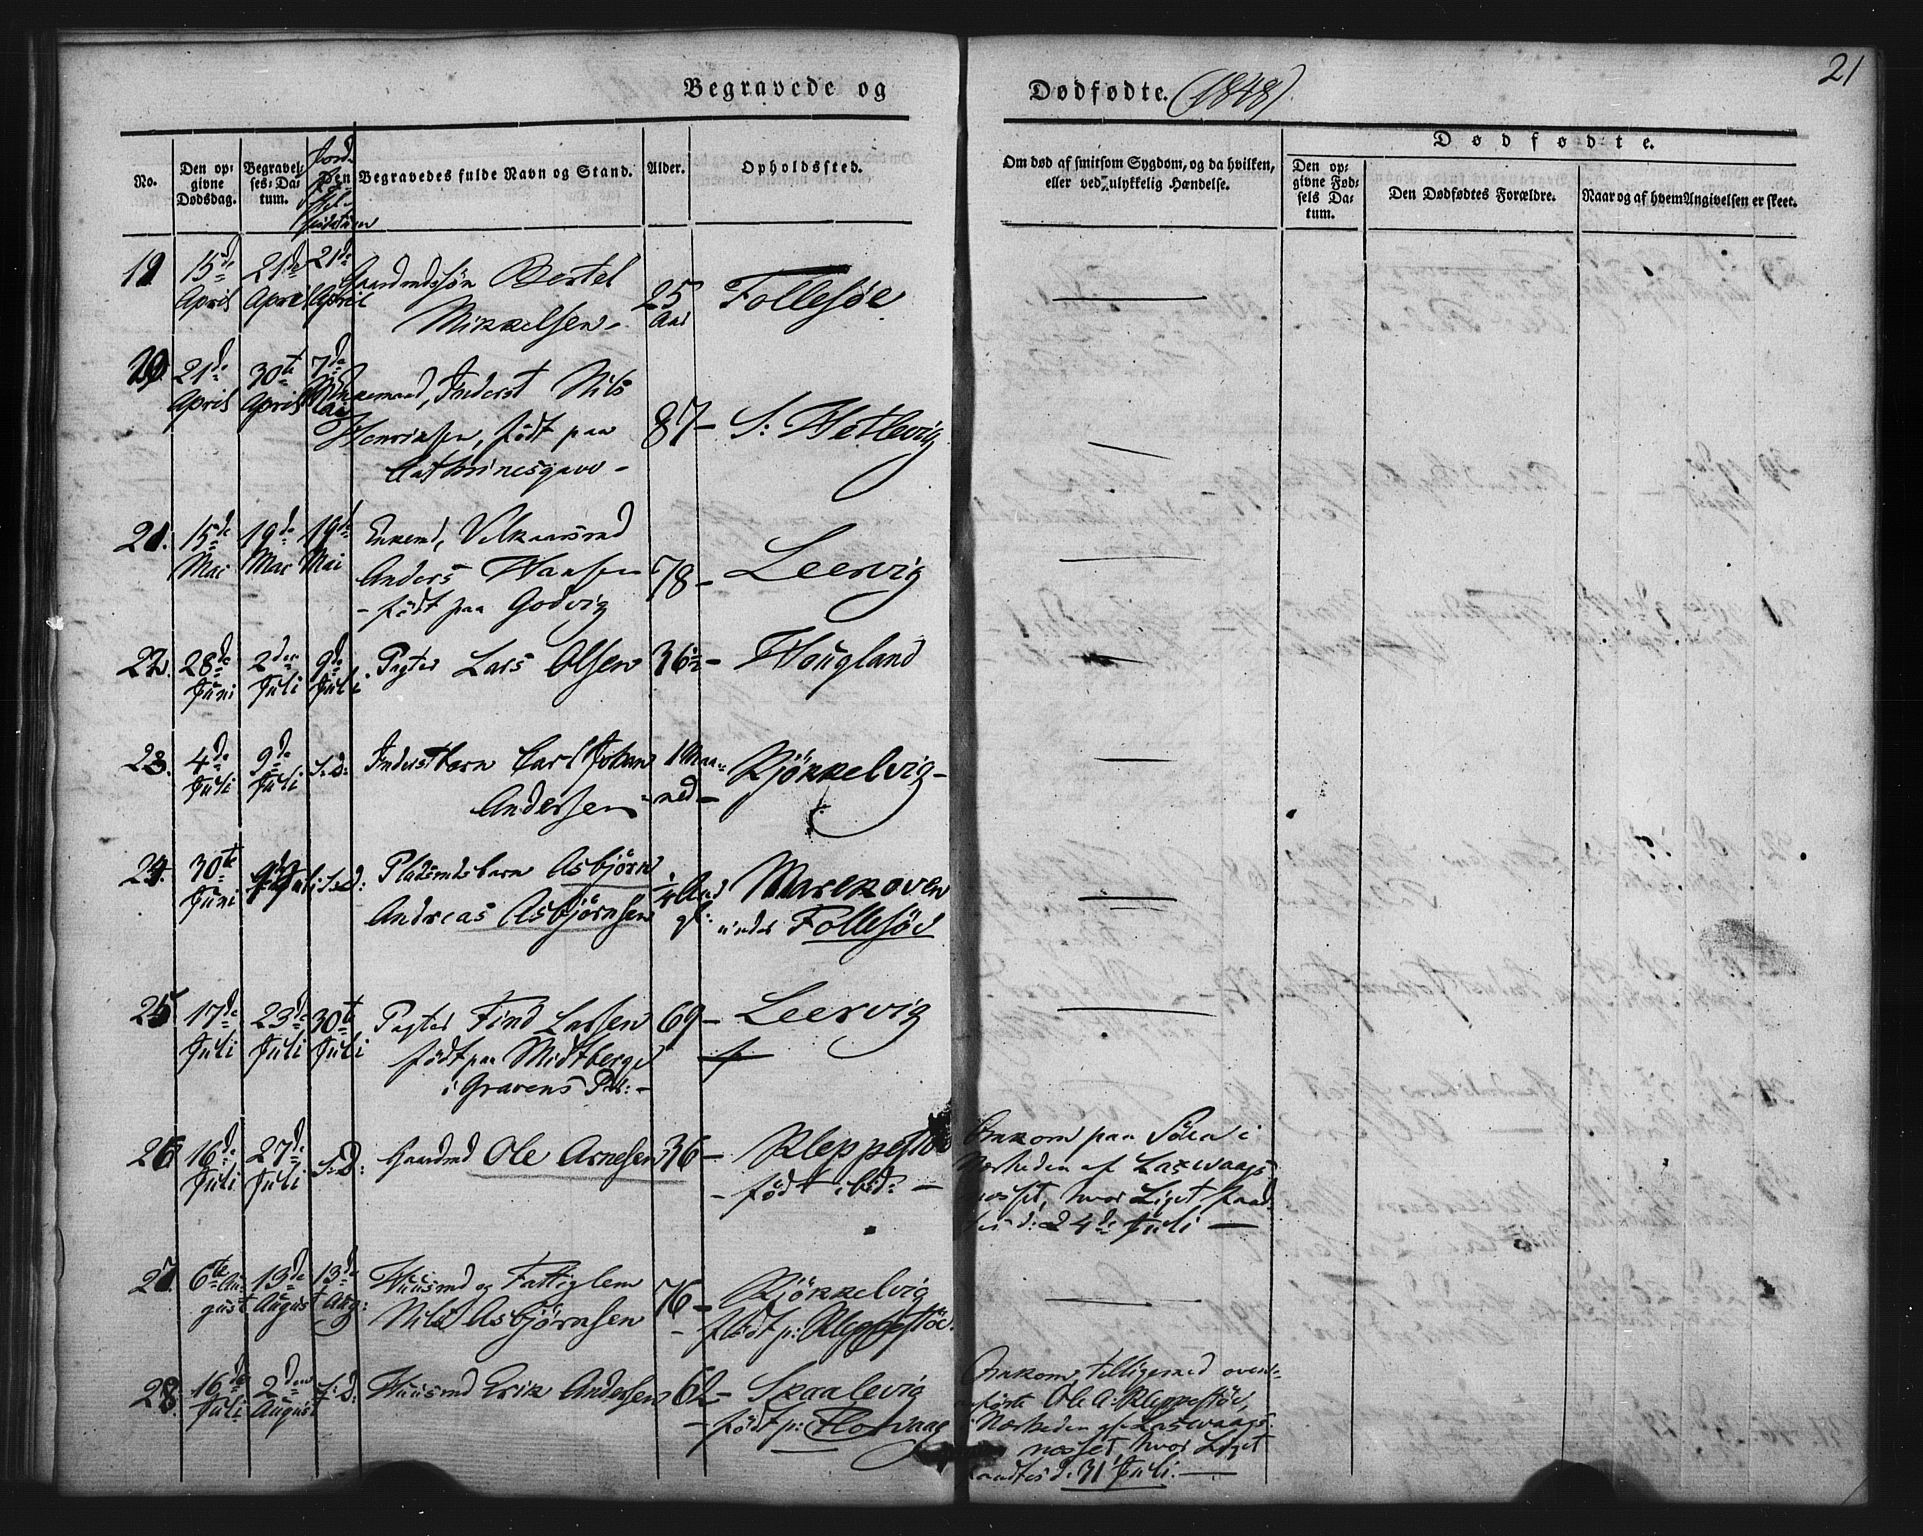 Begravede og Dödfödte. (1848)
21
No.
Den op-
givne
Dødsdag.
Begravel-
ses-Da-
tum.
Begravedes fulde Navn og Stand.
Alder.
Opholdssted.
Om død af smitsom Sygdom, og da hvilken,
eller ved ulykkelig Hændelse.
Dødfødte.
Den op-
givne Fød-
sels Da-
tum.
Den Dødfødtes Forældre.
Naar og af hvem Angivelsen er skeet.
19 15de April 21de April 21de April Gaardmdssön Bertel
Mikkelsen 25 Aar Follesöe
20 21de April 30te April 7de Mai Enkemand, Inderst Nils
Henriksen, födt paa
Cathrinesgaw 87 S: Hetlevig
21. 15de Mai 19de Mai 19de Mai Enkemd, Vilkaarsmd
Anders Hansen 78 Leervig
födt paa Godvig
22. 28de Juni 2den Juli 9de Juli Pagter Lars Olsen 36½ Hougland
23. 4de Juli 9de Juli S: D: Inderstbarn Carl Johan
Andersen 1 Maaned Kjökkelvig
24. 30te Juni 9de Juli S: D: Pladsmdsbarn Asbjörn
Andreas Asbjörnsen ¼ Aar gl: Marekoven
under Follesöe
25 17de Juli 23de Juli 30te Juli Pagter Find Larsen 69 Leervig
födt paa Midtberge
i Gravens Pr:
26 16de Juli 27de Juli S: D: Gaardmd Ole Arnesen 36 Kleppestöe
födt ibid:
Omkom paa Söen i
Nærheden af Laxevaags
næsset, hvor Liget fand
tes d: 24de Juli
27. 6te August 13de August 13de Aug: Huusmd og Fattiglem
Nils Asbjörnsen 76 Kjökkelvig
födt p: Kleppestöe
28. 16de Juli 2den August S: D: Huusmd Erik Andersen 62 Skaalevig
födt p: Florvaag
Omkom tilligemed oven-
förte Ole A: Kleppestöe,
i Nærheden af Laxevaags
næsset, hvor Liget
fandtes d. 31 Juli.